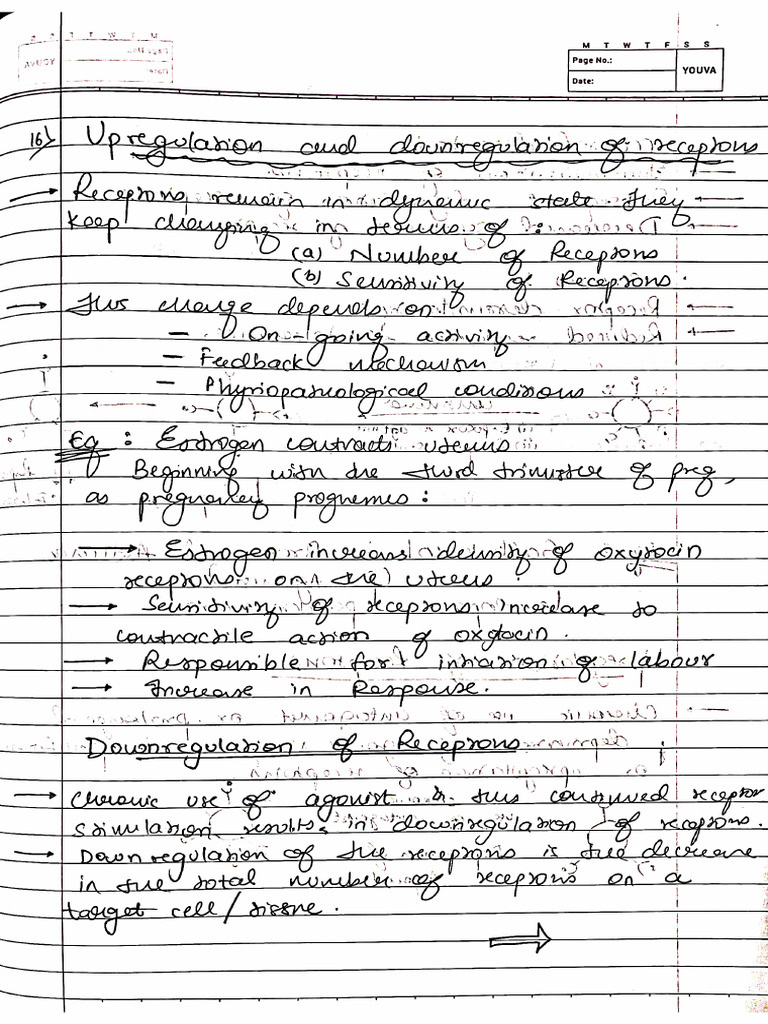 M T W T F S S
Page No.:
YOUVA
Date:
16) Upregulation and downregulation of receptors
→ Receptors remain in dynamic state they
keep changing in terms of :
(a) Number of Receptors
(b) Sensitivity of Receptors.
→ This change depends on
- On-going activity
- Feedback mechanism
- Physiopathological conditions
Eg : Estrogen contracts uterus
Beginning with the third trimester of preg,
as pregnancy progresses :
→ Estrogen increases density of oxytocin
receptors on the uterus
→ Sensitivity of receptors increase to
contractile action of oxytocin.
→ Responsible for intiation of labour
→ Increase in Response.
Downregulation of Receptors
→ Chronic use of agonist & this continued receptor
stimulation results in downregulation of receptors.
→ Down regulation of the receptors is the decrease
in the total number of receptors on a
target cell/tissue.
⇒